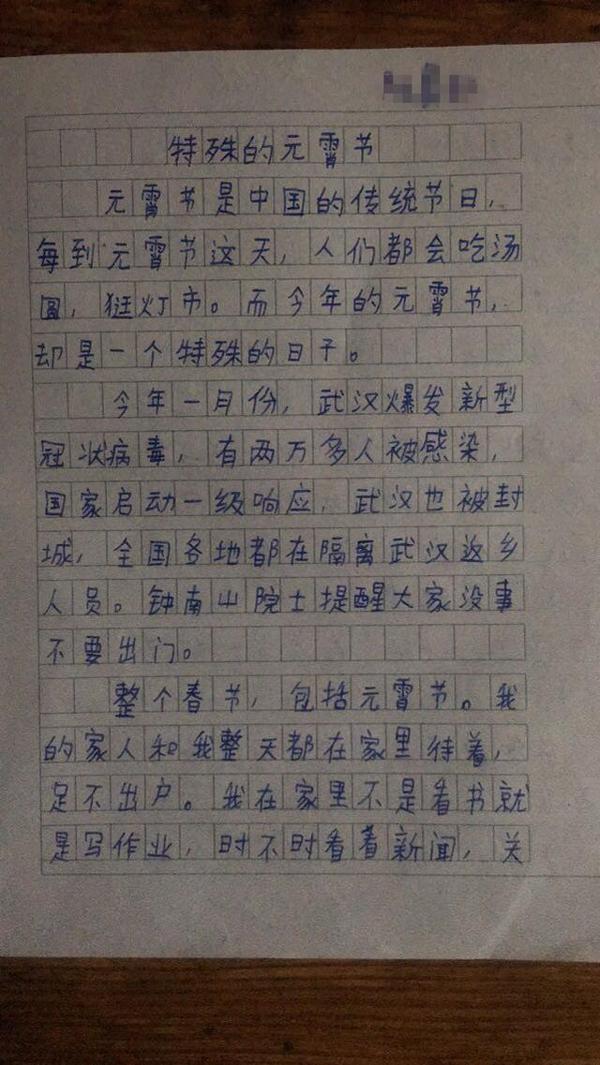 特殊的元霄节
元霄节是中国的传统节日，
每到元霄节这天，人们都会吃汤
圆，逛灯市。而今年的元霄节，
却是一个特殊的日子。
今年一月份，武汉爆发新型
冠状病毒，有两万多人被感染，
国家启动一级响应，武汉也被封
城，全国各地都在隔离武汉返乡
人员。钟南山院士提醒大家没事
不要出门。
整个春节，包括元霄节。我
的家人和我整天都在家里待着，
足不出户。我在家里不是看书就
是写作业，时不时看着新闻，关